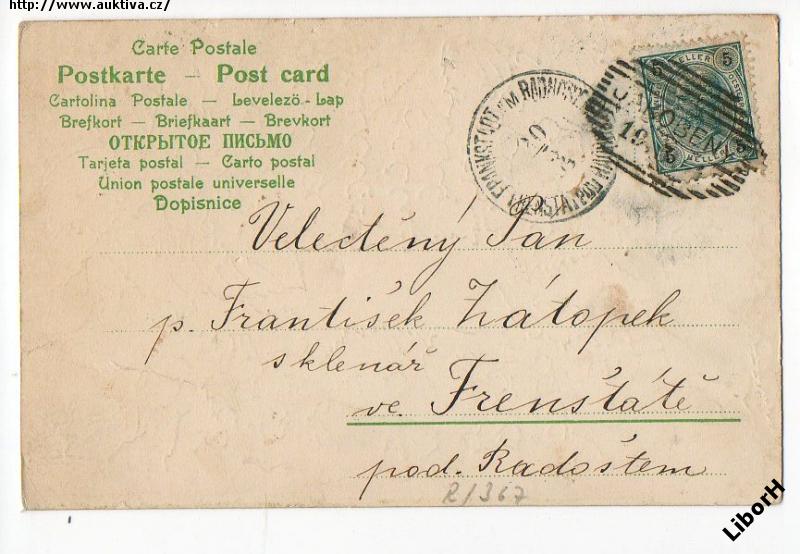 http://www.auktiva.cz/
Carte Postale
Postkarte — Post card
Cartolina Postale — Levelező-Lap
Brefkort — Briefkaart — Brevkort
ОТКРЫТОЕ ПИСЬМО
Tarjeta postal — Carto postal
Union postale universelle
Dopisnice
5 HELLER 5
5 HELLER 5
FRANKSTADT AM RADHOST
Velectěný Pan
p. František Zátopek
sklenář
ve Frenštátě
pod. Radoštem
R/367
LiborH